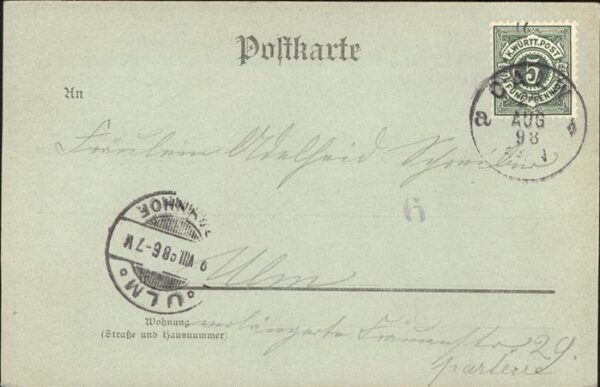 Postkarte
K. WÜRTT. POST
5
FÜNF PFENNIG
CALW
a
AUG
98
An
Fräulein Adelheid Schreiber
6
ULM
VIII 98 6-7 N
BAHNHOF
Ulm
Wohnung
(Straße und Hausnummer)
verlängerte Frauenstr 29.
parterre